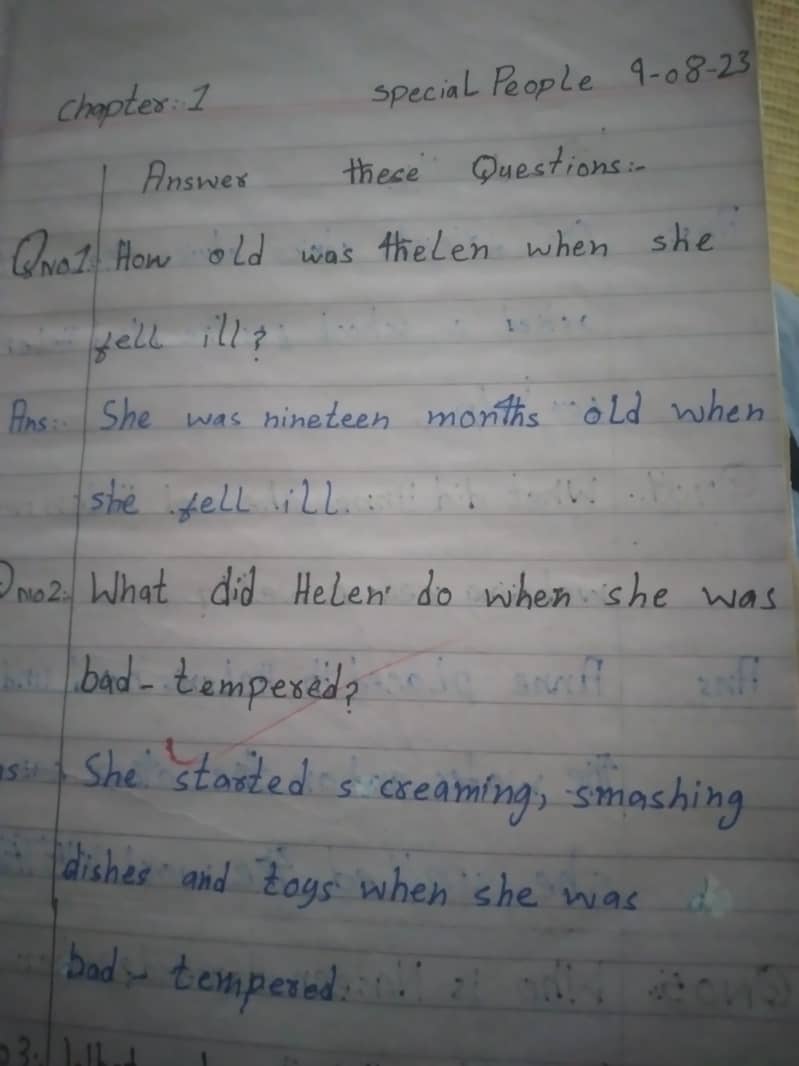 chapter: 1 special People 9-08-23
Answer these Questions:-
Qno1. How old was Helen when she
fell ill?
Ans:- She was nineteen months old when
she fell ill.
Qno2. What did Helen do when she was
bad-tempered?
s:- She started screaming, smashing
dishes and toys when she was
bad-tempered.
03. What